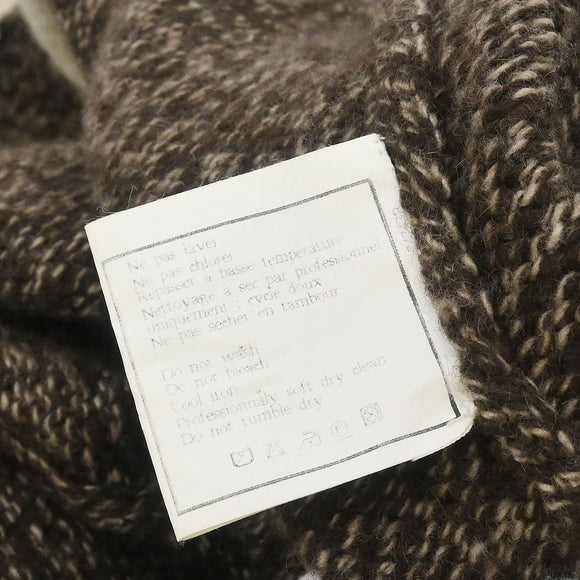 Ne pas laver
Ne pas chlorer
Repasser à basse température
Nettoyage à sec par professionnel
uniquement : cycle doux
Ne pas secher en tambour
Do not wash
Do not bleach
Cool iron
Professionnally soft dry clean
Do not tumble dry